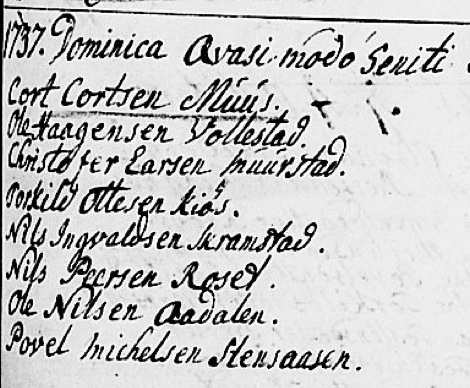 1737. Dominica Qvasi modo Geniti
Cort Cortsen Müüs.
Ole Haagensen Vollestad.
Christofer Larsen Muurstad.
Torkild Ottesen Kiøs.
Nils Ingvaldsen Skramstad.
Nils Peersen Roset.
Ole Nilsen Aadalen.
Povel Michelsen Stensaasen.